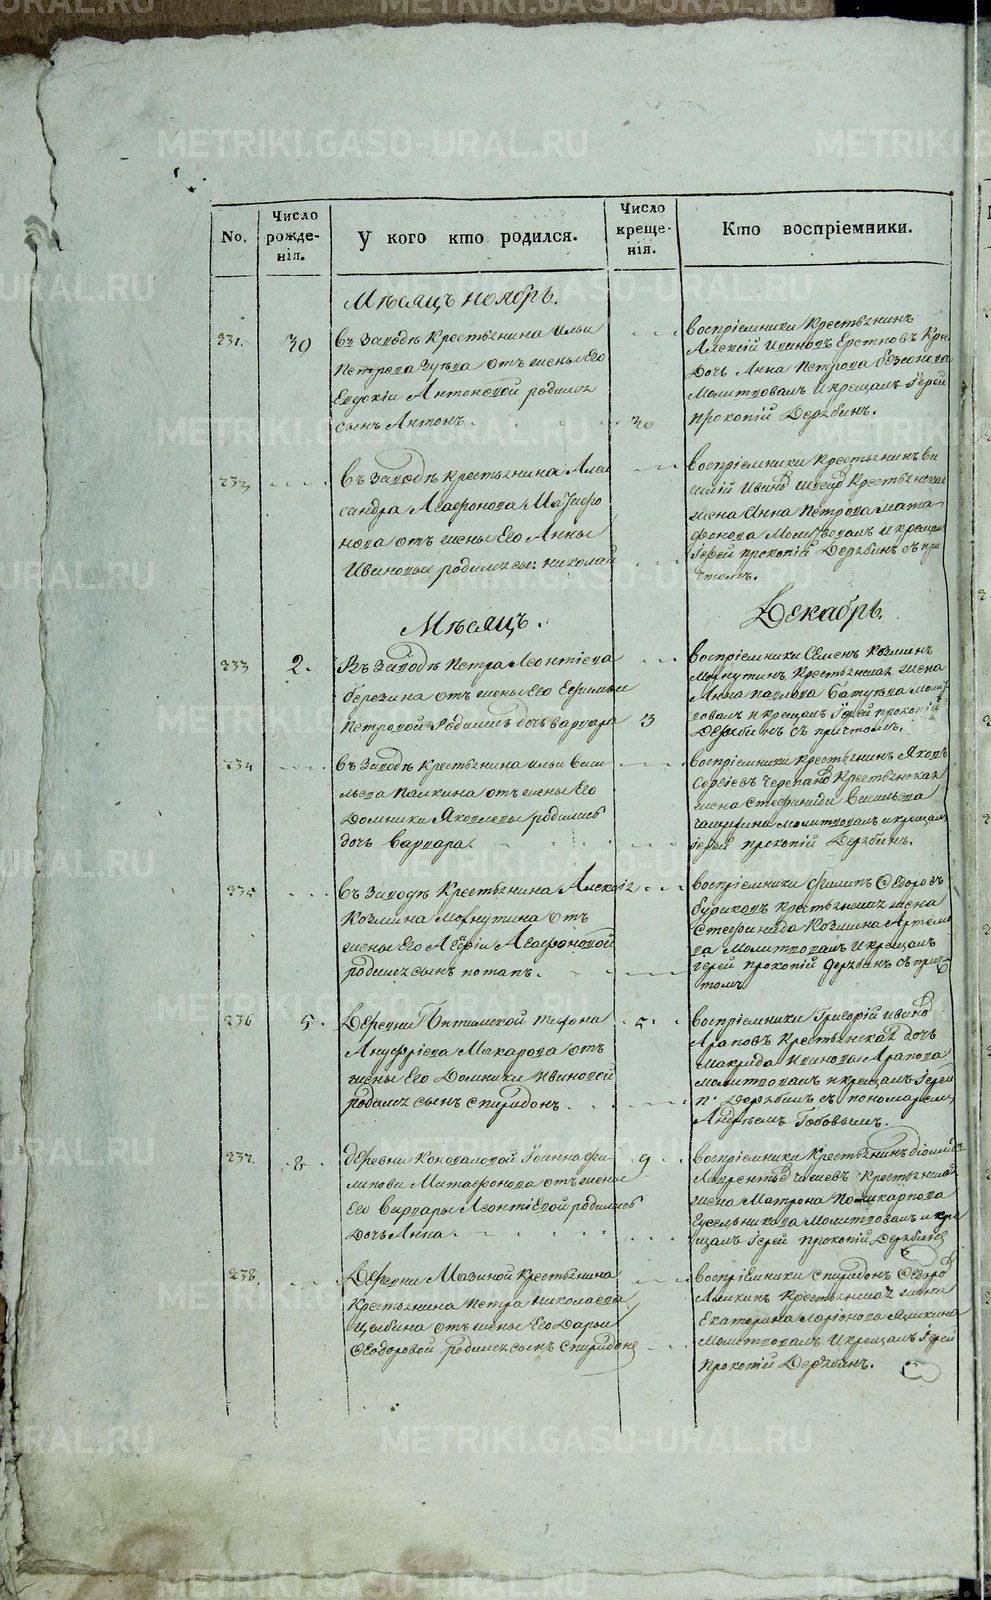 METRIKI.GASO-URAL.RU
No.
Число рожде-нія.
У кого кто родился.
Число креще-нія.
Кто воспріемники.
Мѣсяцъ ноябрь.
231. 30
въ Заводѣ Крестьянина Ильи
Петрова Зуева отъ жены Его
Евдокіи Антоновой родился
сынъ Антонъ. 30
воспріемники Крестьянинъ
Алексій Ивановъ
Дочь Анна Петрова
Молитвовалъ И крещалъ Іерей
прокопій Дерябинъ.
232
въ Заводѣ Крестьянина Алек
сандра Агафонова
нова отъ жены Его Анны
Ивановы родился сы: николай
воспріемники Крестьянинъ Ва
силій Крестьянская
жена Анна Петрова Мата
фонова Молитвовалъ И крещалъ
Іерей прокопій Дерябинъ съ при
чтомъ.
Мѣсяцъ.
Декабрь.
233 2.
Въ Заводѣ Петра Леонтіева
березина отъ жены Его Ефимьи
Петровой Родилась дочь варвара 3
воспріемники Семенъ Козминъ
Махнутинъ Крестьянская жена
Анна павлова Батуева моли
вовалъ и крещалъ Іерей прокопій
Дерябинъ съ причтомъ.
234
въ Заводѣ Крестьянина ильи Васи
льева Палкина отъ жены Его
Домники Яковлевы родилась
дочь варвара.
воспріемники крестьянинъ Яковъ
Сергіевъ Черепановъ Крестьянская
жена Стефанида Васильева
молитвовалъ и крещалъ
іерей прокопій Дерябинъ.
235
въ Заводѣ Крестьянина Алексія
Козмина Махнутина отъ
жены Его Агафоновой
родился сынъ потапъ.
воспріемники филипъ Ѳедоровъ
буриковъ крестьянская жена
Стефанида Козмина Артемье
ва Молитвовалъ И крещалъ
іерей прокопій дерябинъ съ прич
томъ
236 5.
Деревни
Ануфріева Макарова отъ
жены Его Домники Ивановой
родился сынъ спиридонъ. 5.
воспріемники Григорій ивановъ
Араповъ Крестьянская дочь
макрида Иванова Арапова
молитвовалъ и крещалъ Іерей
п: Дерябинъ съ пономаремъ
Андреемъ
237. 8.
деревни Коноваловой Іоанна фи
липова Матафонова отъ жены
Его варвары Леонтіевой родилась
Дочь Анна. 9.
воспріемники Крестьянинъ
Лаврентьевъ Крестьянская
жена Матрона Поликарпова
Гусельникова Молитвовалъ и кре
щалъ Іерей прокопій Дерябинъ
238.
Деревни Мазиной Крестьянина
Крестьянина Петра Николаева
Цыбина отъ жены Его Дарьи
Ѳеодоровой родился сынъ спиридонъ
воспріемники спиридонъ Ѳедоровъ
Крестьянская жена
Екатерина Ларіонова
Молитвовалъ И крещалъ Іерей
Прокопій Дерябинъ.